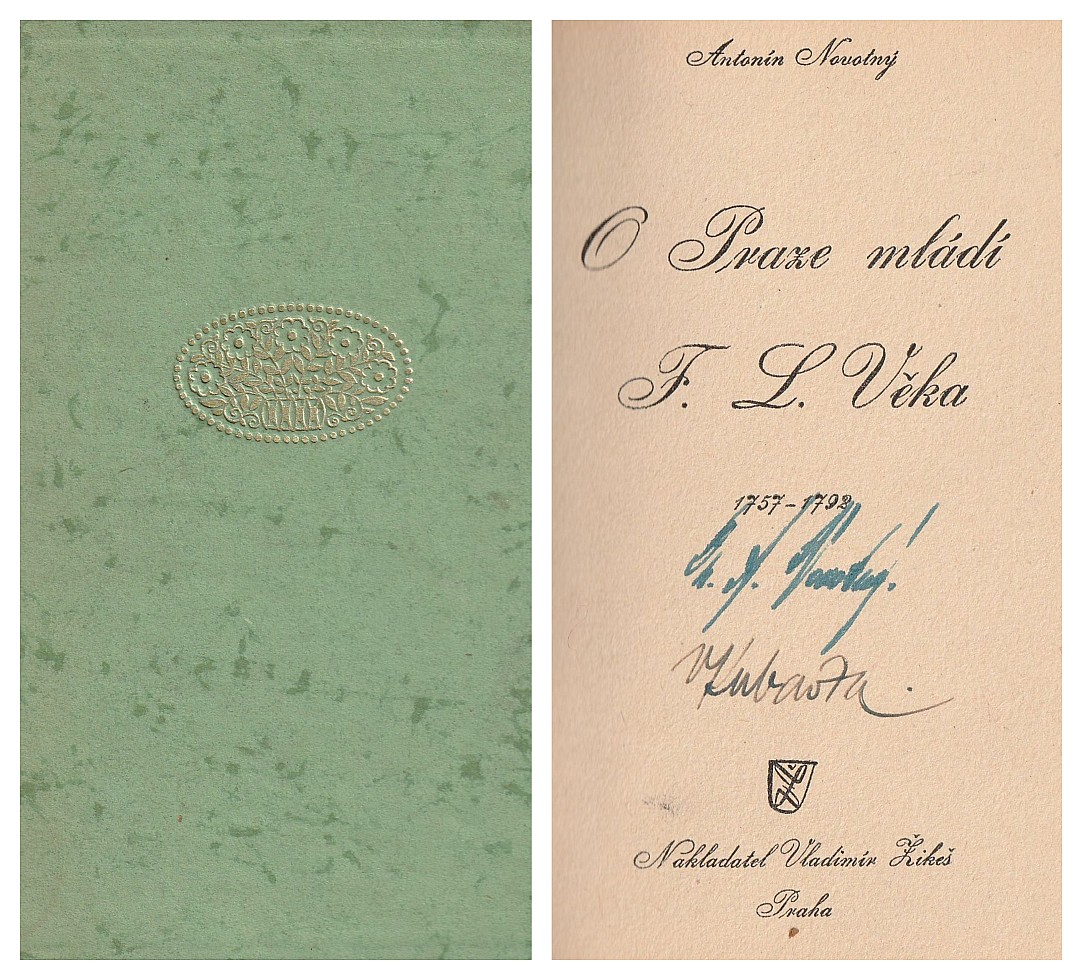 Antonín Novotný
O Praze mládí
F. L. Věka
1757–1792
Dr. A. Novotný.
V Kubašta.
Nakladatel Vladimír Žikeš
Praha